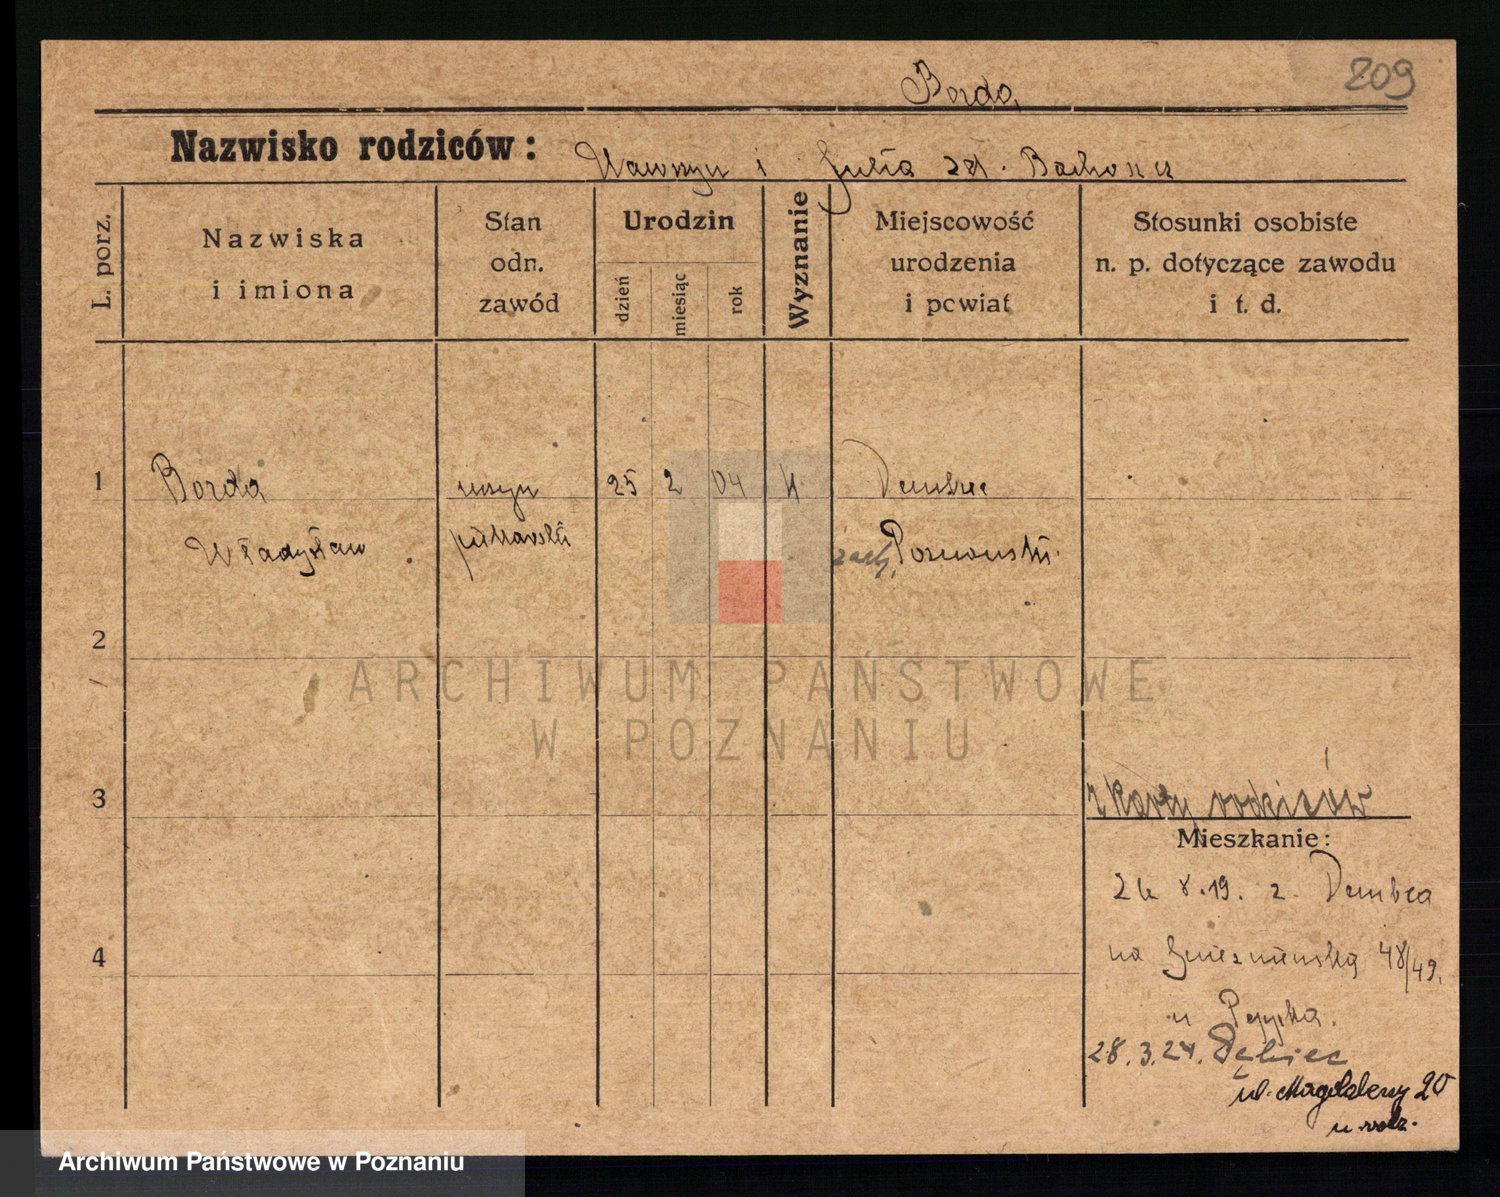 209
Borda
Nazwisko rodziców: Wawrzyn i Julia zd. Bachorz
L. porz.
Nazwiska
i imiona
Stan
odn.
zawód
Urodzin
dzień
miesiąc
rok
Wyznanie
Miejscowość
urodzenia
i powiat
Stosunki osobiste
n. p. dotyczące zawodu
i t. d.
1 Borda 25 2 04 k Dembsec
Władysław piekarski zach. Poznański
2
3
z karty rodziców
Mieszkanie:
26 8.19. z Dembca
4
na Gnieźnieńską 48/49.
u
28.3.24. Dębiec
ul. Magdaleny 20
u rodz.
ARCHIWUM PAŃSTWOWE
W POZNANIU
Archiwum Państwowe w Poznaniu